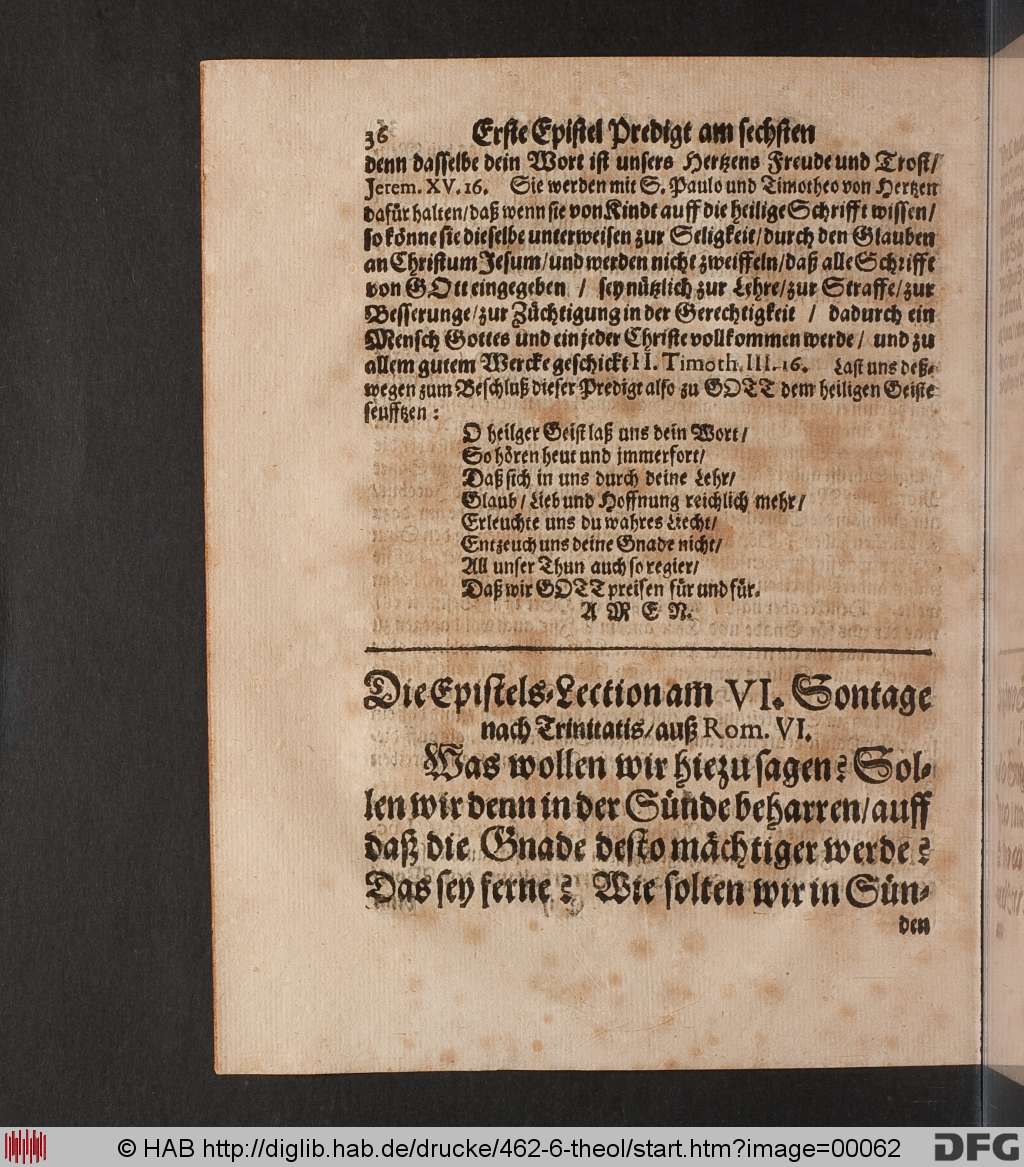 36 Erste Epistel Predigt am sechsten
denn dasselbe dein Wort ist unsers Hertzens Freude und Trost/
Jerem. XV. 16. Sie werden mit S. Paulo und Timotheo von Hertzen
dafür halten/daß wenn sie von Kindt auff die heilige Schrifft wissen/
so könne sie dieselbe unterweisen zur Seligkeit/durch den Glauben
an Christum Jesum/und werden nicht zweiffeln/daß alle Schrifft
von GOtt eingegeben / sey nützlich zur Lehre/zur Straffe/zur
Besserunge/zur Züchtigung in der Gerechtigkeit / dadurch ein
Mensch Gottes und ein jeder Christe vollkommen werde/ und zu
allem gutem Wercke geschickt II. Timoth. III. 16. Last uns deß-
wegen zum Beschluß dieser Predigt also zu GOTT dem heiligen Geiste
seufftzen:
O heilger Geist laß uns dein Wort/
So hören heut und jmmerfort/
Daß sich in uns durch deine Lehr/
Glaub/Lieb und Hoffnung reichlich mehr/
Erleuchte uns du wahres Liecht/
Entzeuch uns deine Gnade nicht/
All unser Thun auch so regier/
Daß wir GOTT preisen für und für.
A M E N.
Die Epistels-Lection am VI. Sontage
nach Trinitatis/auß Rom. VI.
Was wollen wir hiezu sagen? Sol-
len wir denn in der Sünde beharren/auff
daß die Gnade desto mächtiger werde?
Das sey ferne? Wie solten wir in Sün-
den
© HAB http://diglib.hab.de/drucke/462-6-theol/start.htm?image=00062
DFG